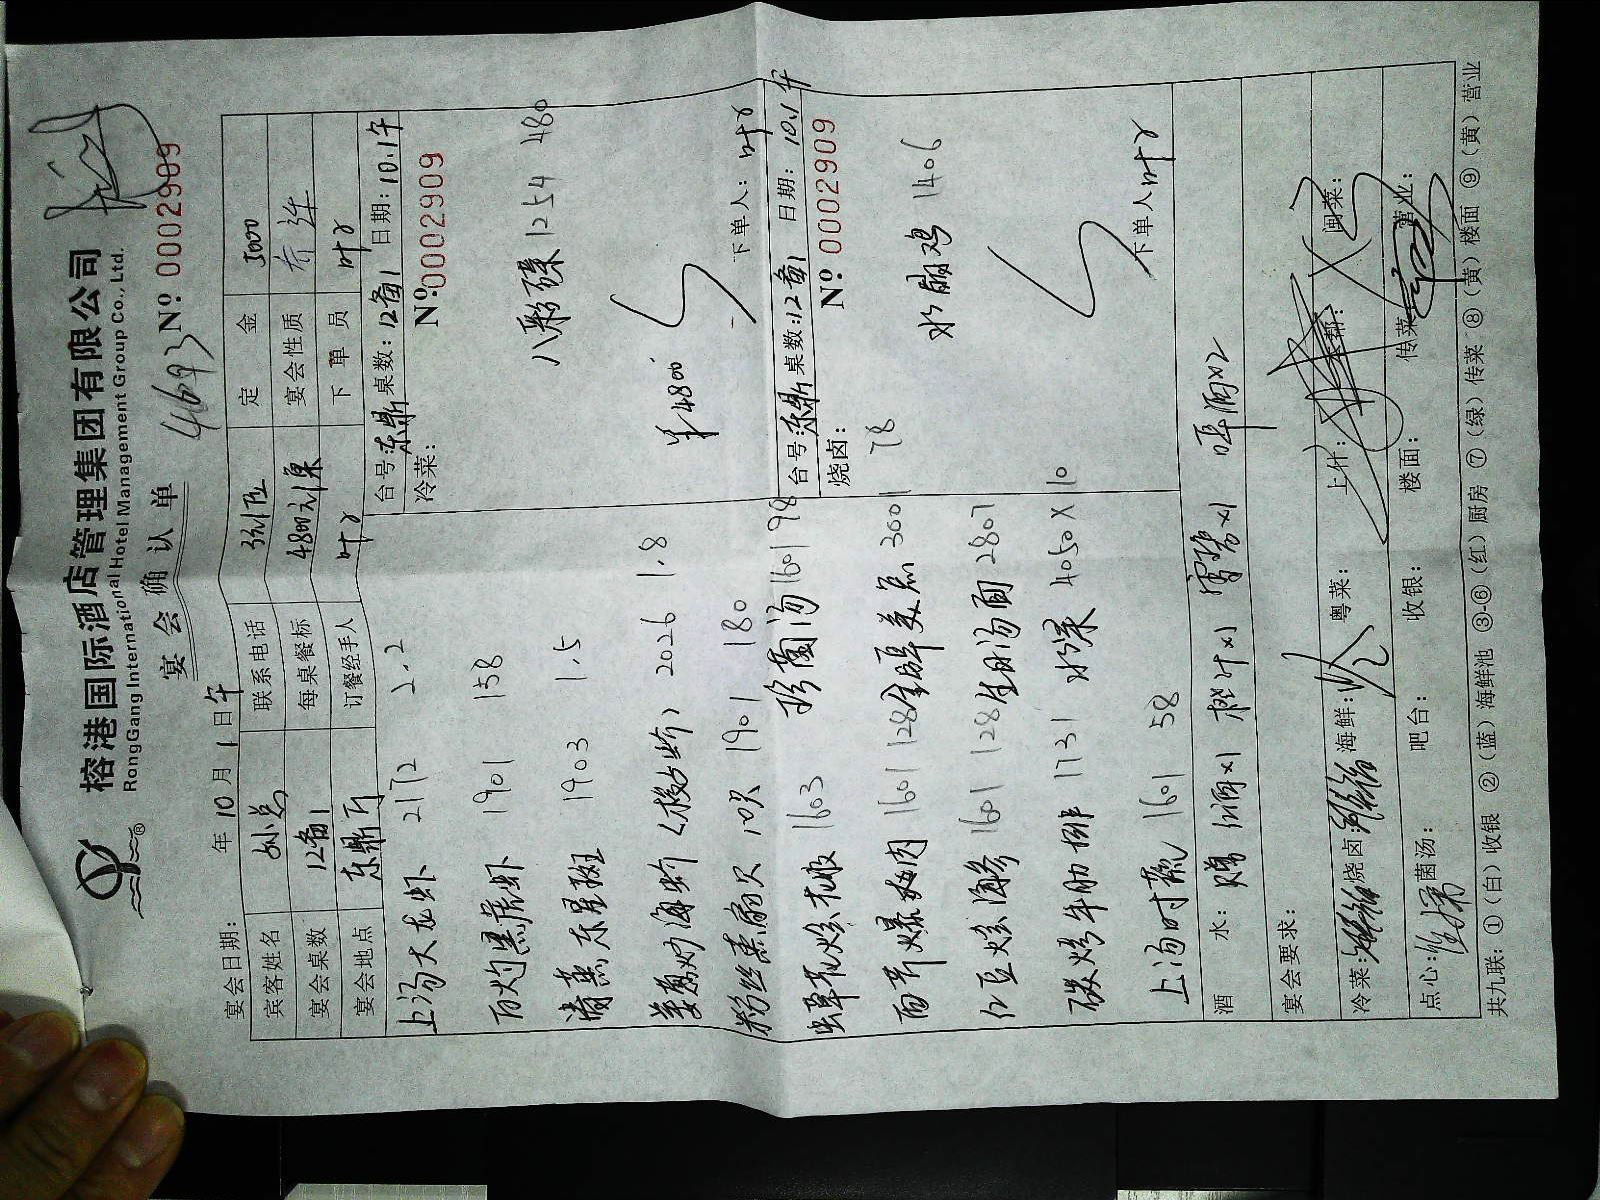 榕港国际酒店管理集团有限公司
RongGang International Hotel Management Group Co., Ltd.
宴会确认单 4693 Nº 0002909
宴会日期: 年10月1日午
宾客姓名 联系电话 定金 5000
宴会桌数 12备1 每桌餐标 4800元/桌 宴会性质
宴会地点 东鼎厅 订餐经手人 叶 下单员 叶
台号:东鼎 桌数:12备1 日期:10.1午
冷菜: Nº 0002909
上汤大龙虾 2172 2.2
八彩碟 1254 480
白灼黑虎虾 1901 158
清蒸东星斑 1903 1.5
¥4800
姜葱炒海蚧(梭蚧) 2026 1.8
下单人:叶
粉丝蒸扇贝 10只 1901 180
台号:东鼎 桌数:12备1 日期:10.1午
烧卤: Nº 0002909
虫草花炖花胶 1603 珍菌汤 1601 98
78 水晶鸡 1406
西芹爆螺肉 1601 128 3001
红豆炖海参 1601 128 生日汤面 2807
碳烤牛肋排 1731 水果 4050×10
下单人叶
上汤时蔬 1601 58
酒水: 红酒×1 橙汁×1 雪碧×1 啤酒×2
宴会要求:
冷菜: 烧卤: 海鲜: 粤菜: 上什: 本帮: 闽菜:
点心: 菌汤: 吧台: 收银: 楼面: 传菜: 营业:
共九联:①(白)收银 ②(蓝)海鲜池 ③-⑥(红)厨房 ⑦(绿)传菜 ⑧(黄)楼面 ⑨(黄)营业